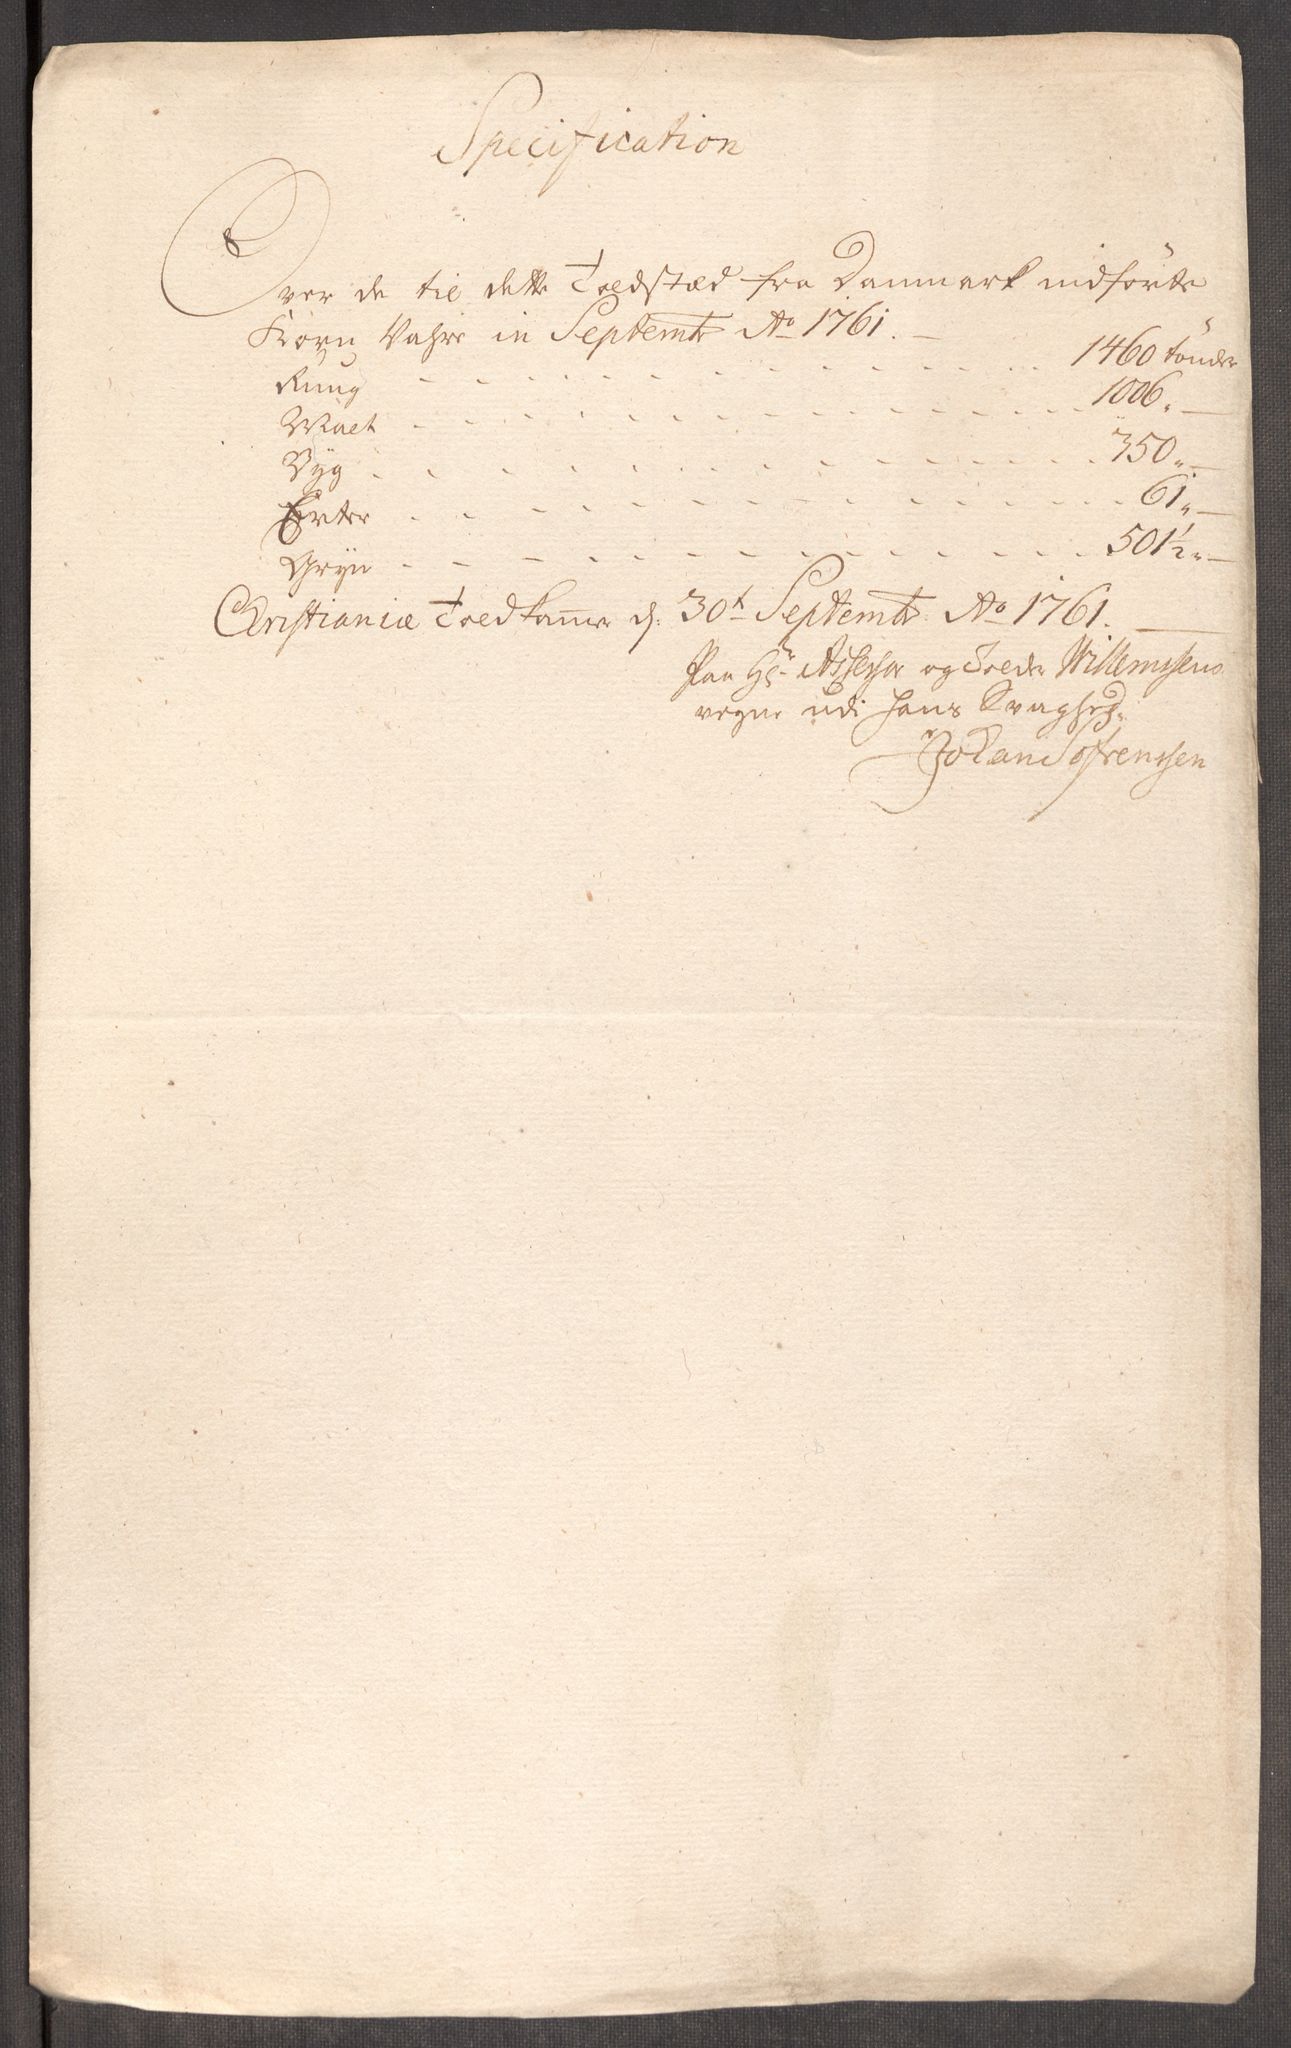 Specification
Over de til dette Toldstæd fra Danmark indförte
Korn Vahre in Septembr Ao 1761.
Rug - - - 1460 tönder
Malt - - - 1006. „ —
Byg - - - 350. „ —
Erter - - - 61 „ —
Gryn - - - 501½ „ —
Christianiæ Toldkamer d. 30t Septembr Ao 1761.
Paa Hr Assessor og Tolder Willemssens
vegne udi hans Svaghed.
Johan Söfrenssen